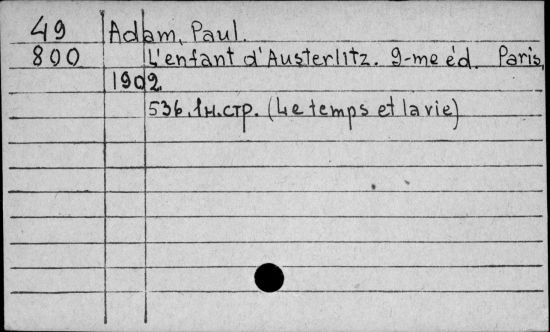 49 Adam, Paul.
800 L'enfant d'Austerlitz. 9-me éd. Paris,
1902.
536, 1н.стр. (Le temps et la vie)